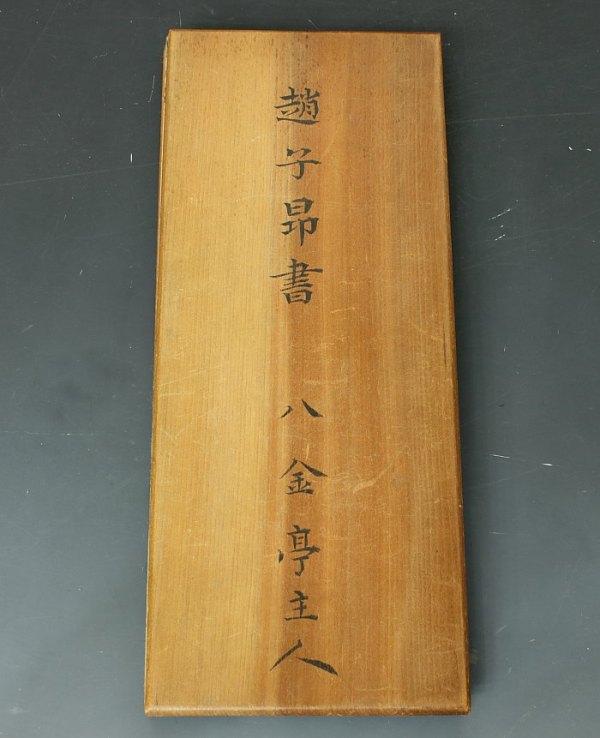 趙子昂書 八金亭主人